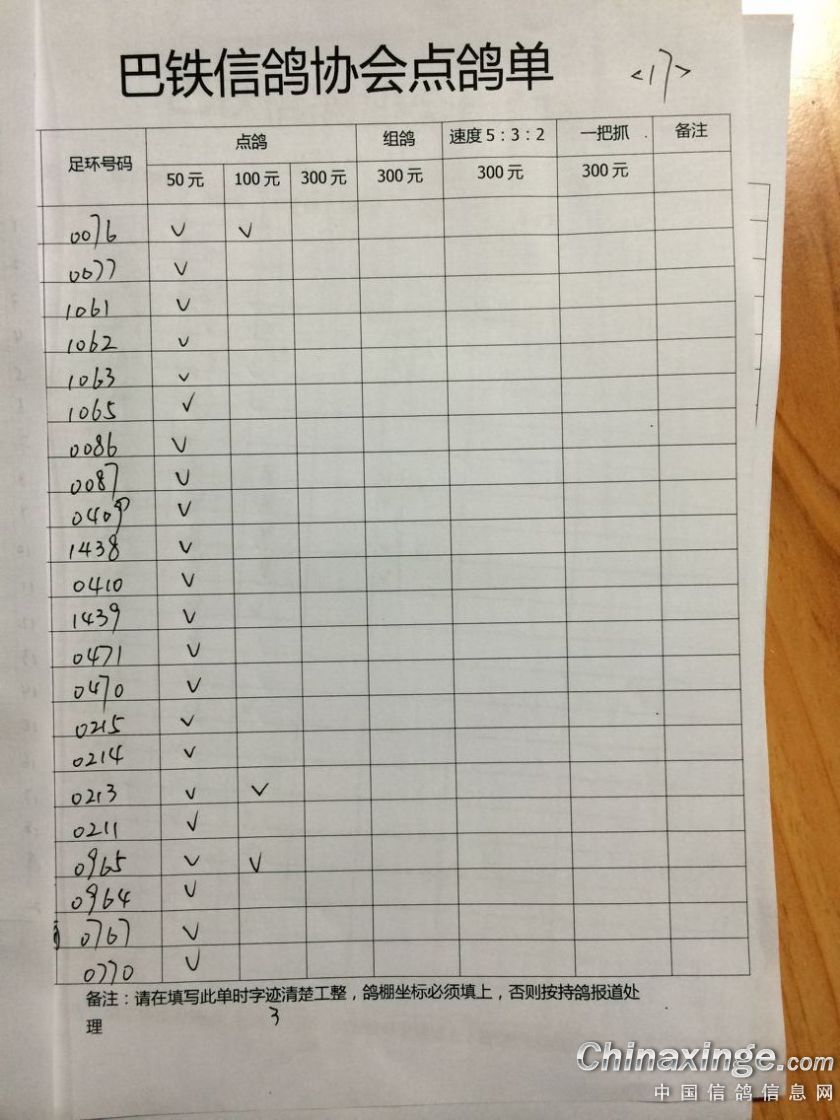 巴铁信鸽协会点鸽单 <17>
足环号码 点鸽 组鸽 速度5:3:2 一把抓 备注
50元 100元 300元 300元 300元 300元
0076 V V
0077 V
1061 V
1062 V
1063 V
1065 V
0086 V
0087 V
0409 V
1438 V
0410 V
1439 V
0471 V
0470 V
0215 V
0214 V
0213 V V
0211 V
0965 V V
0964 V
0767 V
0770 V
备注:请在填写此单时字迹清楚工整,鸽棚坐标必须填上,否则按持鸽报道处
理
3
Chinaxinge.com
中国信鸽信息网